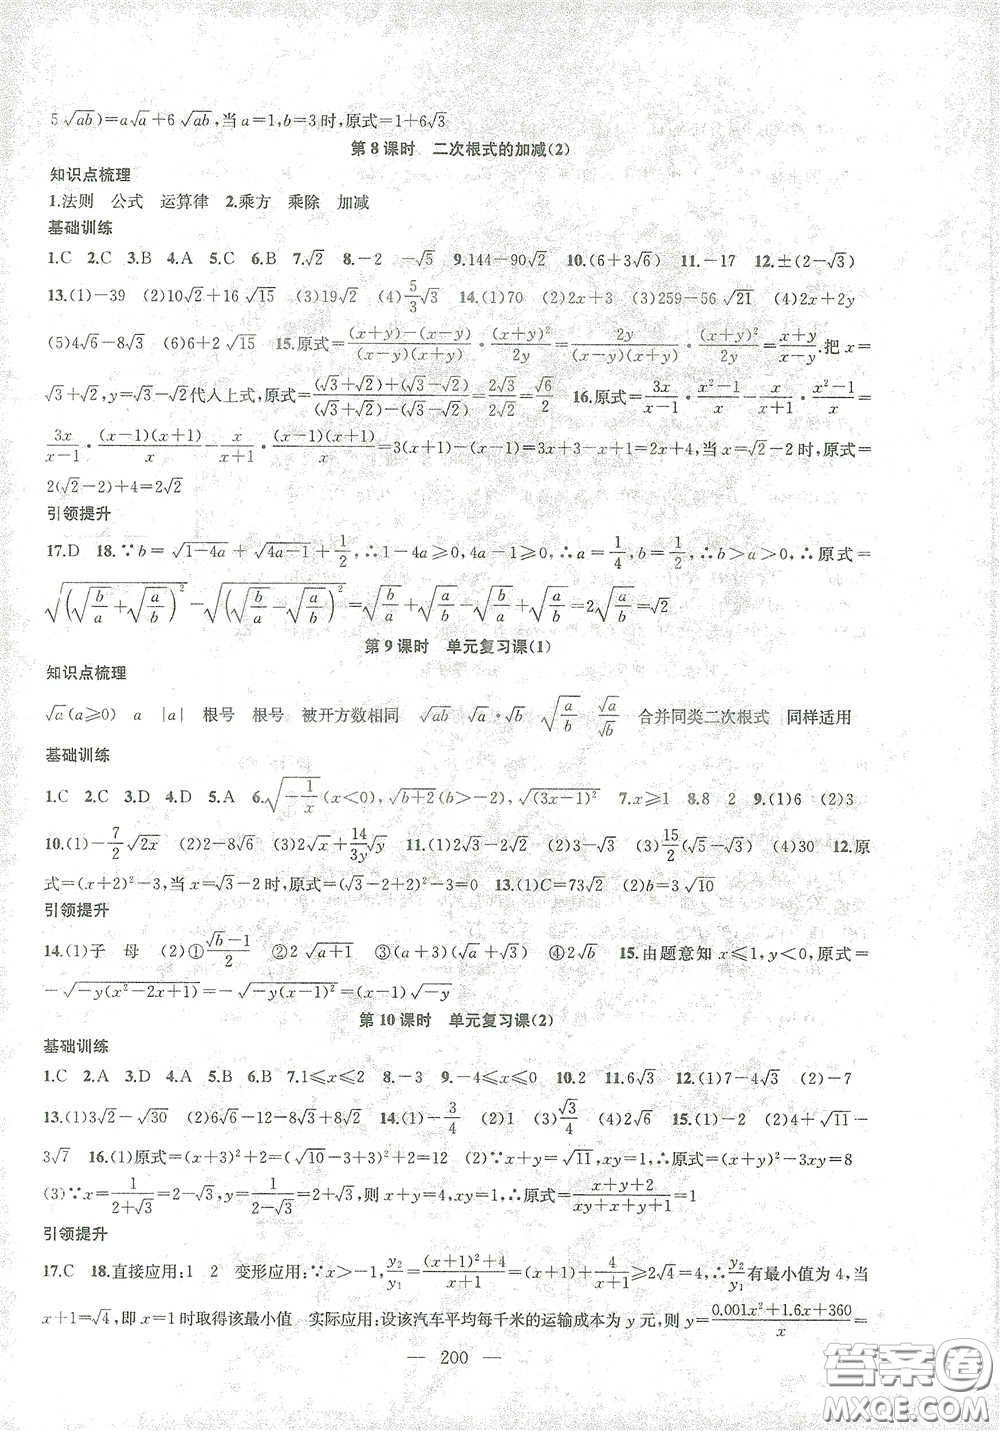 5√(ab))=a√a+6√(ab),当a=1,b=3时,原式=1+6√3
第8课时 二次根式的加减(2)
知识点梳理
1.法则 公式 运算律 2.乘方 乘除 加减
基础训练
1.C 2.C 3.B 4.A 5.C 6.B 7.√2 8.-2 -√5 9.144-90√2 10.(6+3√6) 11.-17 12.±(2-√3)
13.(1)-39 (2)10√2+16√15 (3)19√2 (4)5/3√3 14.(1)70 (2)2x+3 (3)259-56√21 (4)2x+2y
(5)4√6-8√3 (6)6+2√6 15.原式=((x+y)-(x-y))/((x-y)(x+y))·(x+y)²/2y=2y/((x-y)(x+y))·(x+y)²/2y=(x+y)/(x-y).把x=
√3+√2,y=√3-√2代入上式,原式=((√3+√2)+(√3-√2))/((√3+√2)-(√3-√2))=2√3/2√2=√6/2 16.原式=3x/(x-1)·(x²-1)/x-x/(x+1)·(x²-1)/x=
3x/(x-1)·(x-1)(x+1)/x-x/(x+1)·(x-1)(x+1)/x=3(x+1)-(x-1)=3x+3-x+1=2x+4,当x=√2-2时,原式=
2(√2-2)+4=2√2
引领提升
17.D 18.∵b=√(1-4a)+√(4a-1)+1/2,∴1-4a≥0,4a-1≥0,∴a=1/4,b=1/2,∴b>a>0,∴原式=
√((√(b/a)+√(a/b))²)-√((√(b/a)-√(a/b))²)=√(b/a)+√(a/b)-√(b/a)+√(a/b)=2√(a/b)=√2
第9课时 单元复习课(1)
知识点梳理
√a(a≥0) a |a| 根号 根号 被开方数相同 √(ab) √a·√b √(a/b) √a/√b 合并同类二次根式 同样适用
基础训练
1.C 2.C 3.D 4.D 5.A 6.√(-1/x)(x<0),√(b+2)(b>-2),√((3x-1)²) 7.x≥1 8.8 2 9.(1)6 (2)3
10.(1)-7/2√(2x) (2)2-8√6 (3)2√x+14/3y√y 11.(1)2√3-2√2 (2)3√6 (3)15/2(√5-√3) (4)30 12.原
式=(x+2)²-3,当x=√3-2时,原式=(√3-2+2)²-3=0 13.(1)C=73√2 (2)b=3√10
引领提升
14.(1)子 母 (2)①(√b-1)/2 ②2√(a+1) ③(a+3)(√a+√3) ④2√b 15.由题意知x≤1,y<0,原式=
-√(-y(x²-2x+1))=-√(-y(x-1)²)=(x-1)√(-y)
第10课时 单元复习课(2)
基础训练
1.C 2.A 3.D 4.A 5.B 6.B 7.1≤x≤2 8.-3 9.-4≤x≤0 10.2 11.6√3 12.(1)7-4√3 (2)-7
13.(1)3√2-√30 (2)6√6-12-8√3+8√2 14.(1)-3/4 (2)1 (3)√3/4 (4)√6 15.(1)-2 (2)4+√11-
3√7 16.(1)原式=(x+3)²+2=(√10-3+3)²+2=12 (2)∵x+y=√11,xy=1,∴原式=(x+y)²-3xy=8
(3)∵x=1/(2+√3)=2-√3,y=1/(2-√3)=2+√3,则x+y=4,xy=1,∴原式=(x+y+2)/(xy+x+y+1)=1
引领提升
17.C 18.直接应用:1 2 变形应用:∵x>-1,y₂/y₁=((x+1)²+4)/(x+1)=(x+1)+4/(x+1)≥2√4=4,∴y₂/y₁有最小值为4,当
x+1=√4,即x=1时取得该最小值 实际应用:设该汽车平均每千米的运输成本为y元,则y=(0.001x²+1.6x+360)/x=
— 200 —
答案卷
MXQE.COM